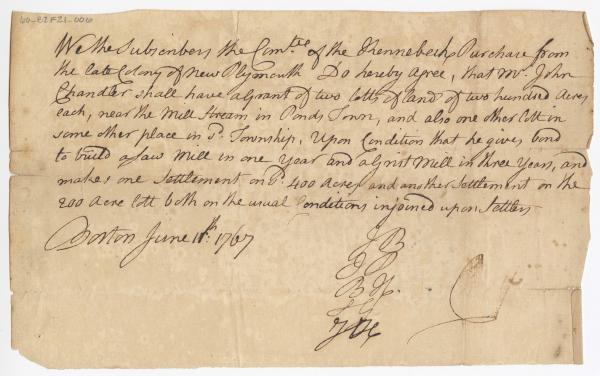 60-E2F21-006
We the Subscribers the Com.tee of the Kennebeck Purchase from
the late Colony of New Plymouth Do hereby Agree, that Mr. John
Chandler shall have a Grant of two lotts of land of two hundred Acres
each, near the Mill Stream in Ponds Town, and also one other lott in
some other place in Sd. Township, Upon Condition that he gives bond
to build a Saw Mill in one Year and a Grist Mill in three Years, and
make one Settlement on Sd. 400 Acres and another Settlement on the
200 Acre lott both on the usual Conditions injoined upon Settlers
Boston June 11th. 1767
JB
JP
BH.